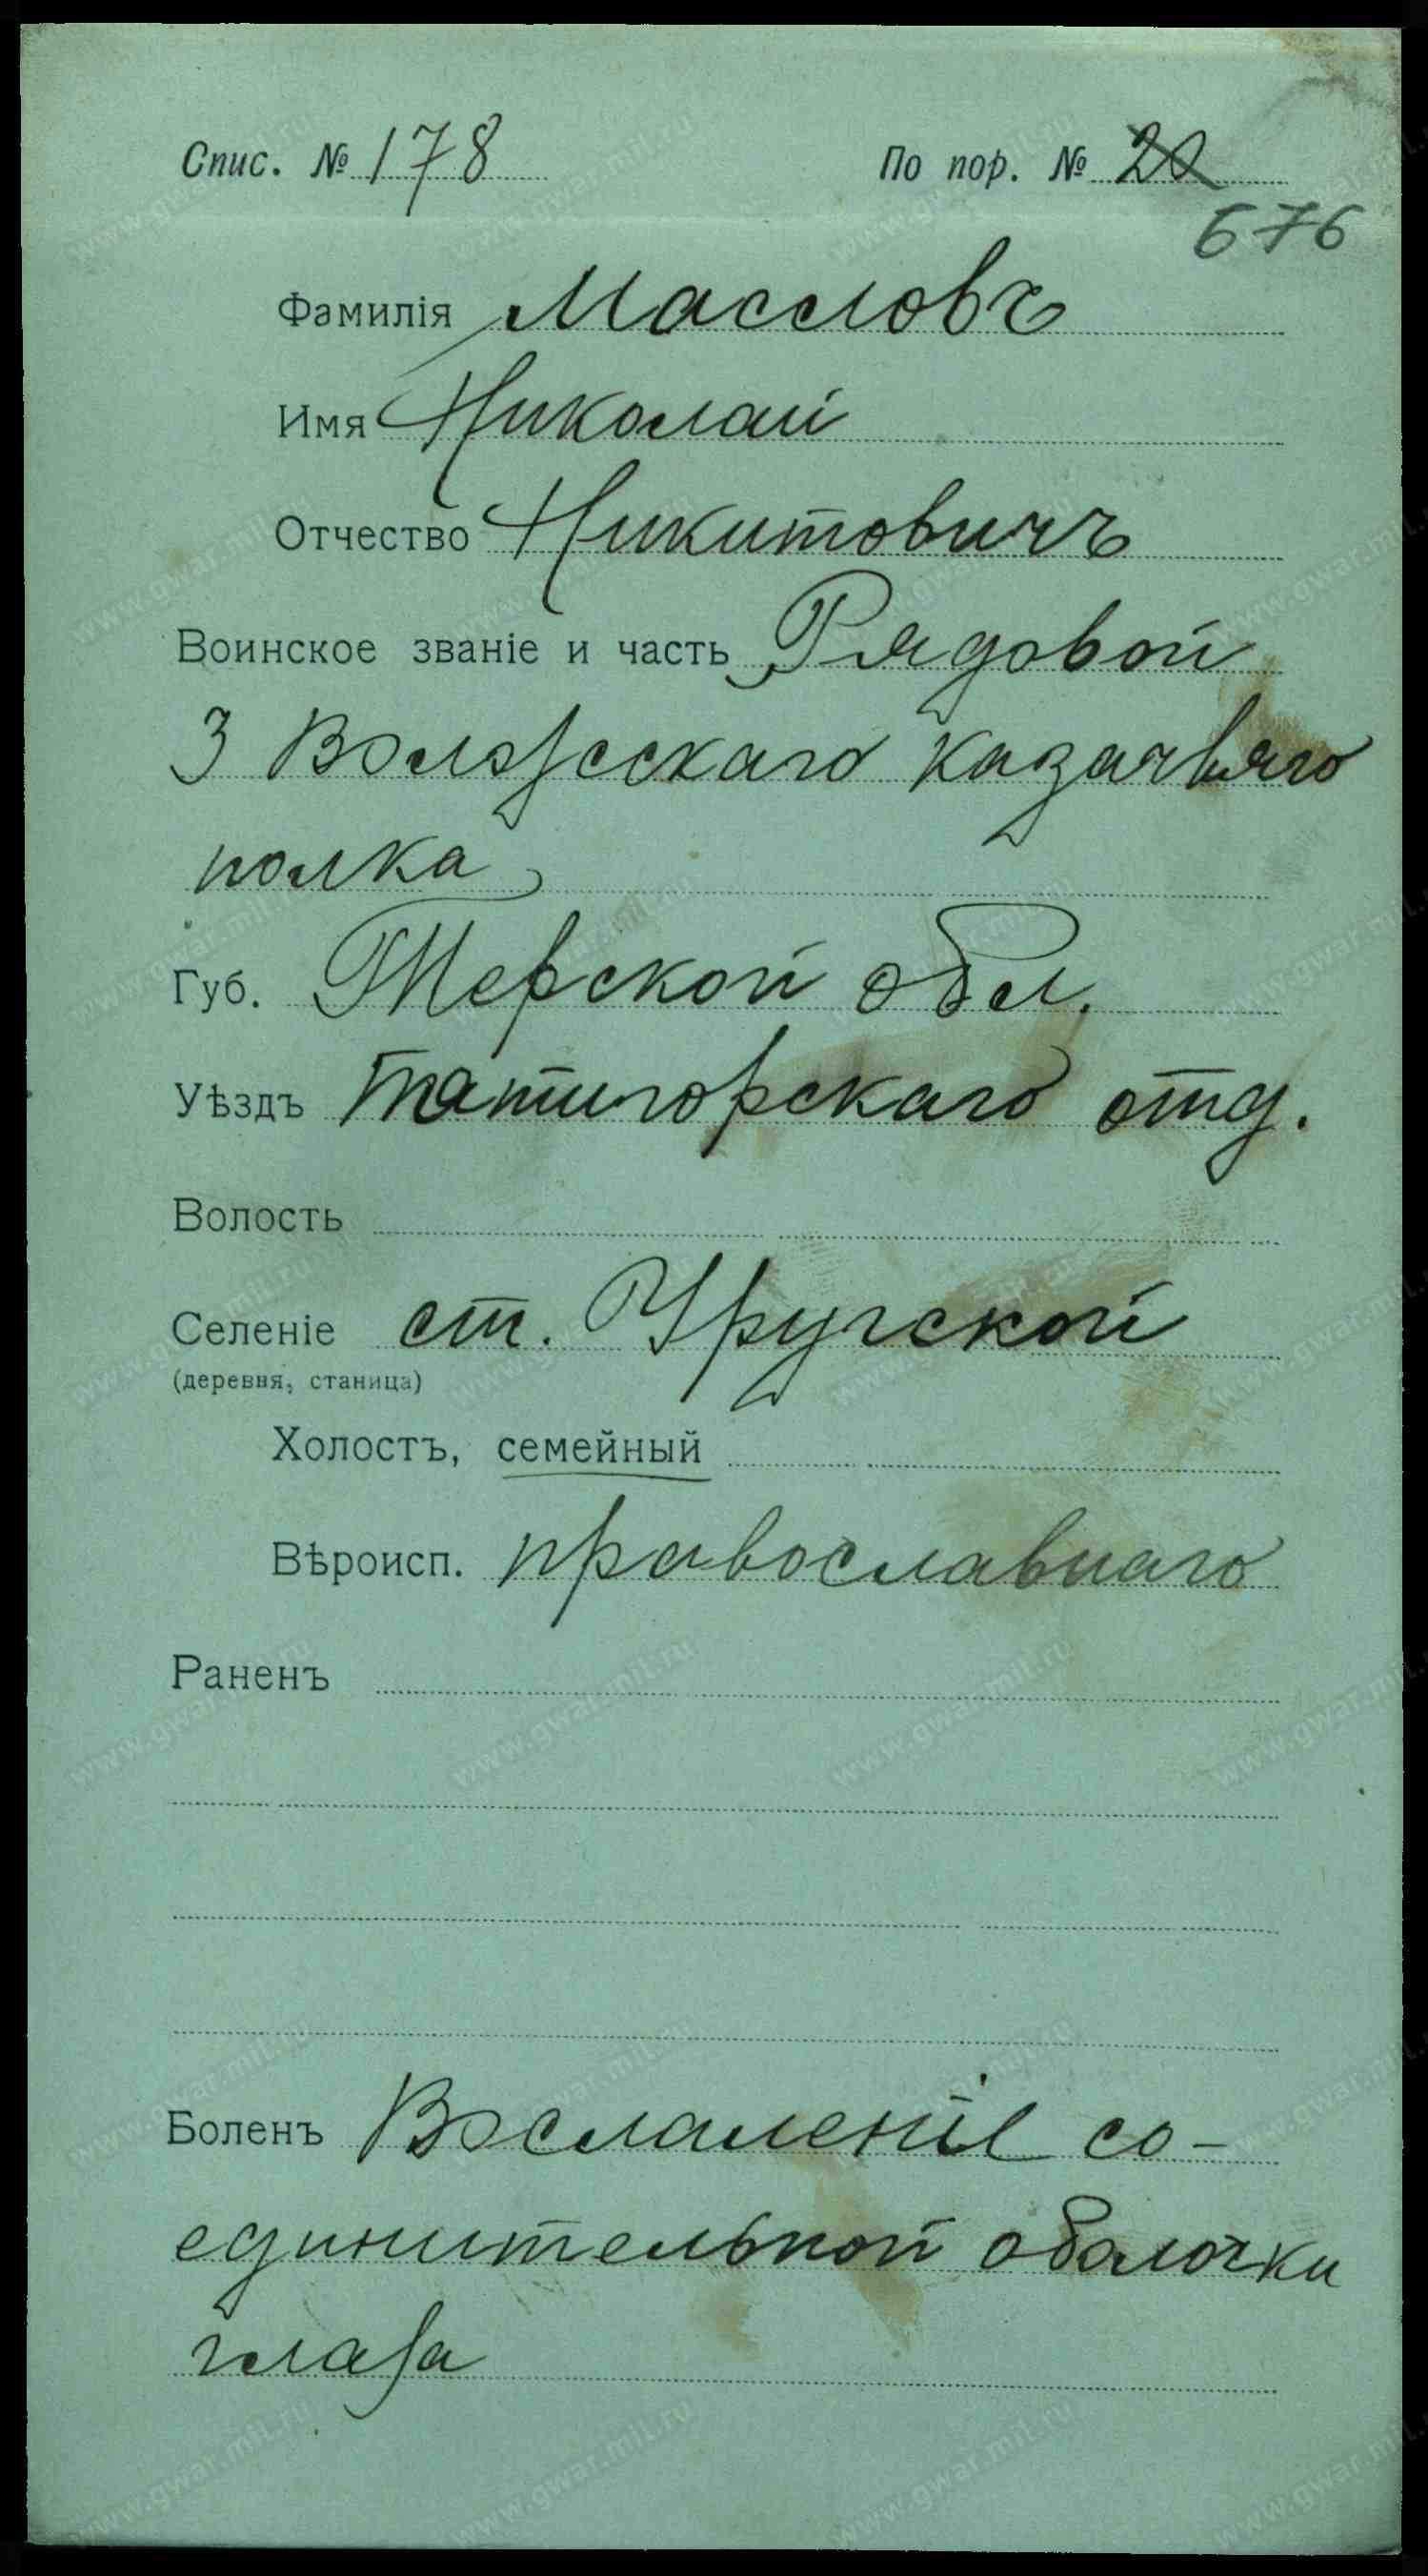 Спис. № 178 По пор. № 20
676
Фамилія Масловъ
Имя Николай
Отчество Никитовичъ
Воинское званіе и часть Рядовой
3 Волгсскаго казачьяго
полка
Губ. Терской обл.
Уѣздъ Пятигорскаго отд.
Волость
Селеніе ст. Урухской
(деревня, станица)
Холостъ, семейный
Вѣроисп. православнаго
Раненъ
Боленъ Воспаленіе со-
единительной оболочки
глаза